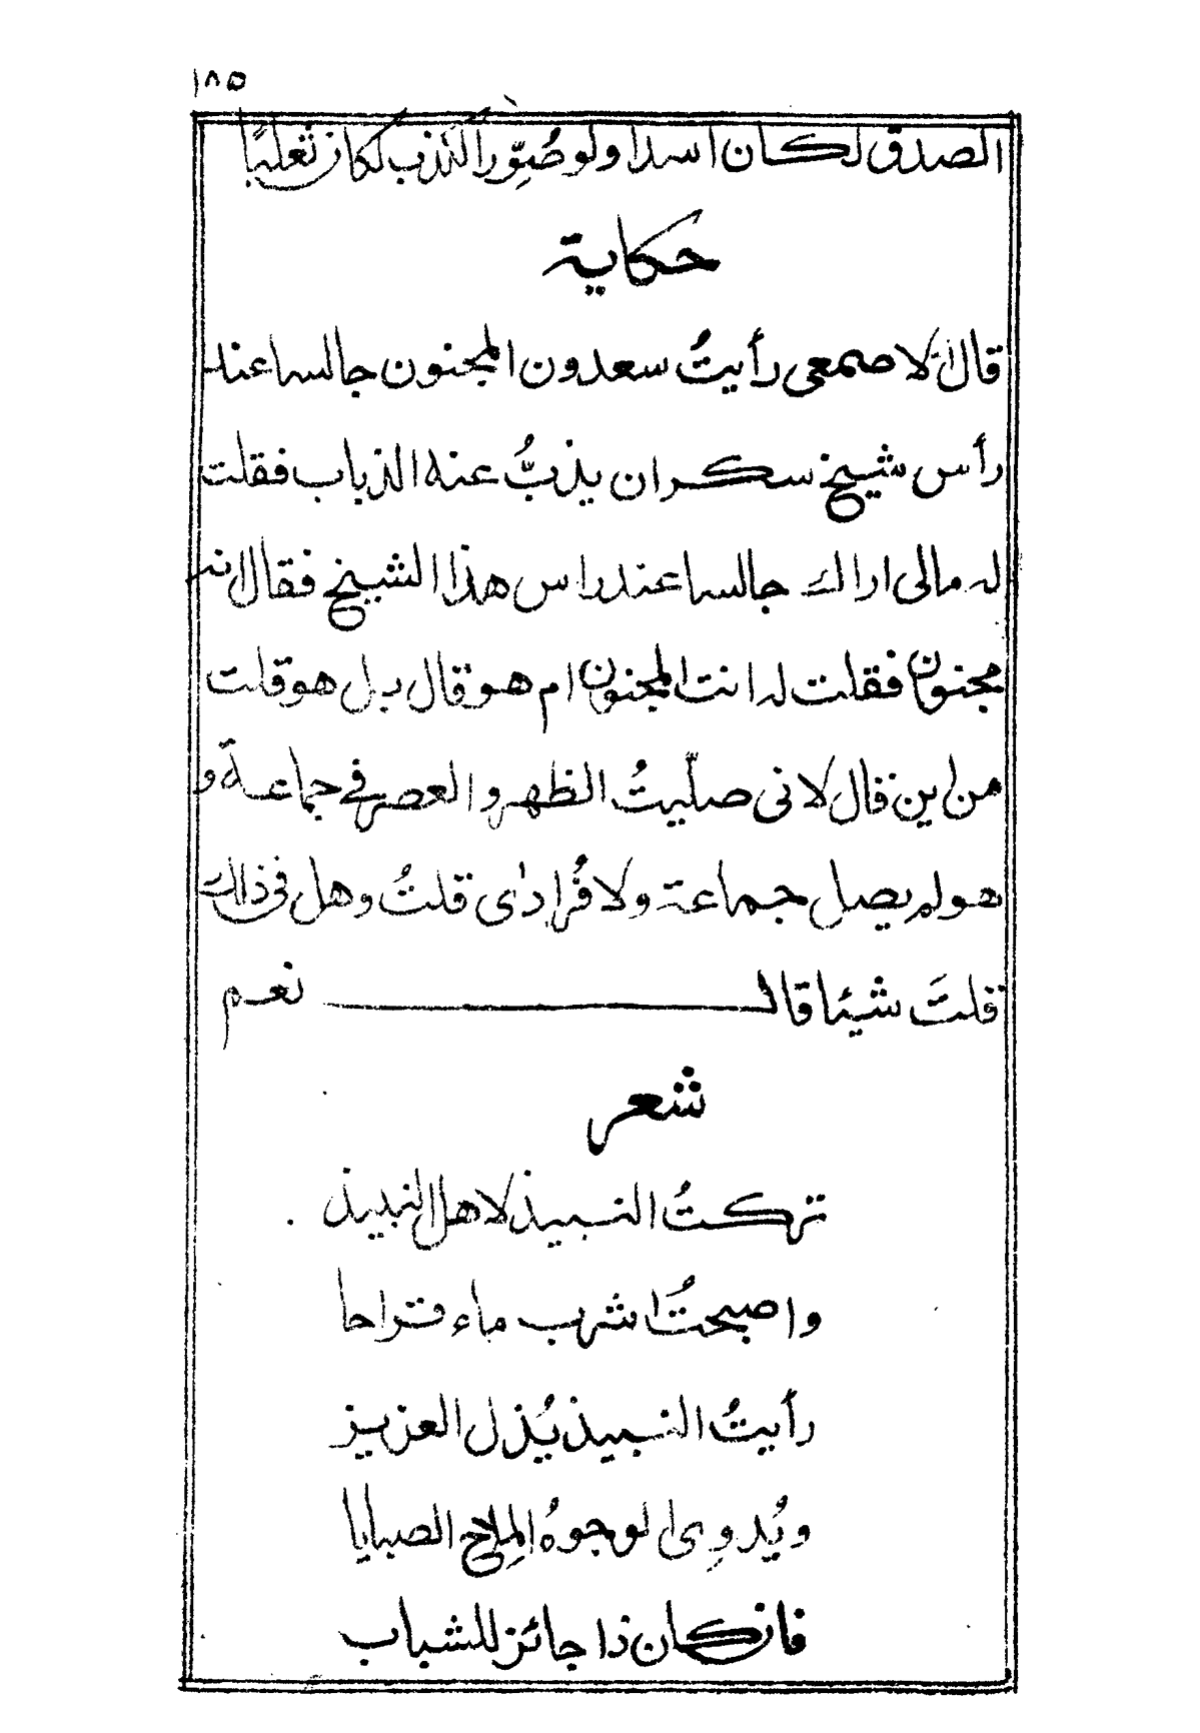 ١٨٥
الصدق لكان اسدا ولو صُوِّر الكذب لكان ثعلبًا
حكاية
قال الاصمعى رأيتُ سعدون المجنون جالسا عند
رأس شيخ سكران يذبُّ عنه الذباب فقلت
له مالى اراك جالسا عند راس هذا الشيخ فقال انه
مجنون فقلت له انت المجنون ام هو قال بل هو قلت
من اين قال لانى صلّيتُ الظهر والعصر في جماعة و
هو لم يصل جماعة ولا فُرادٰى قلتُ وهل فى ذلك
قلتَ شيئا قال نعم
شعر
تركتُ النبيذ لاهل النبيذ
واصبحتُ اشرب ماء قراحا
رأيتُ النبيذ يُذل العزيز
ويُدوِى الوجوهُ المِلاح الصبايا
فان كان ذا جائز للشباب